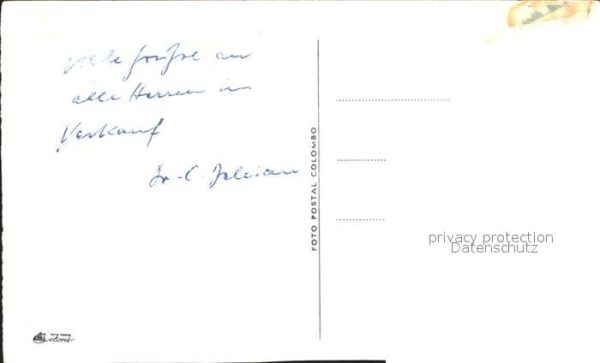 viele Grüße an
alle Herren im
Verkauf
Dr. C.
FOTO POSTAL COLOMBO
privacy protection
Datenschutz